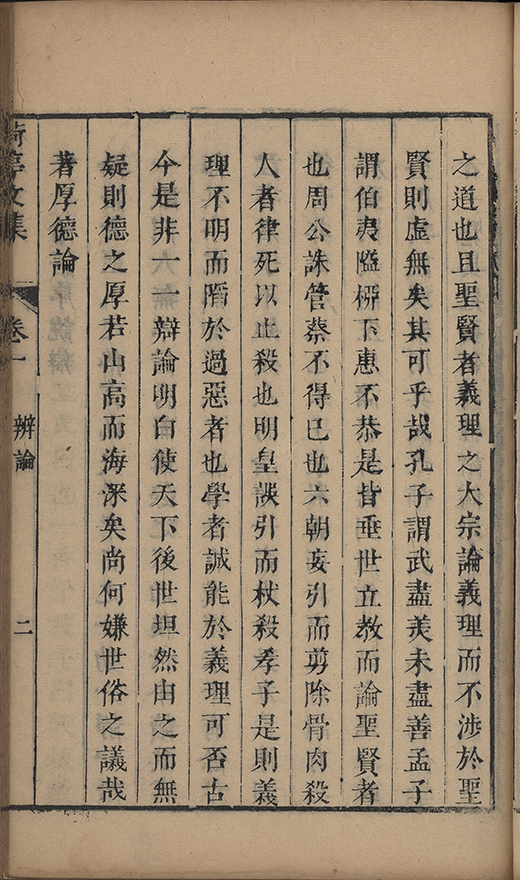 之道也且聖賢者義理之大宗論義理而不涉於聖
賢則虛無矣其可乎哉孔子謂武盡美未盡善孟子
謂伯夷隘柳下惠不恭是皆垂世立教而論聖賢者
也周公誅管蔡不得已也六朝妄引而剪除骨肉殺
人者律死以止殺也明皇誤引而杖殺孝子是則義
理不明而陷於過惡者也學者誠能於義理可否古
今是非一一辯論明白使天下後世坦然由之而無
疑則德之厚若山高而海深矣尚何嫌世俗之議哉
著厚德論
亭文集 卷一 辨論 二